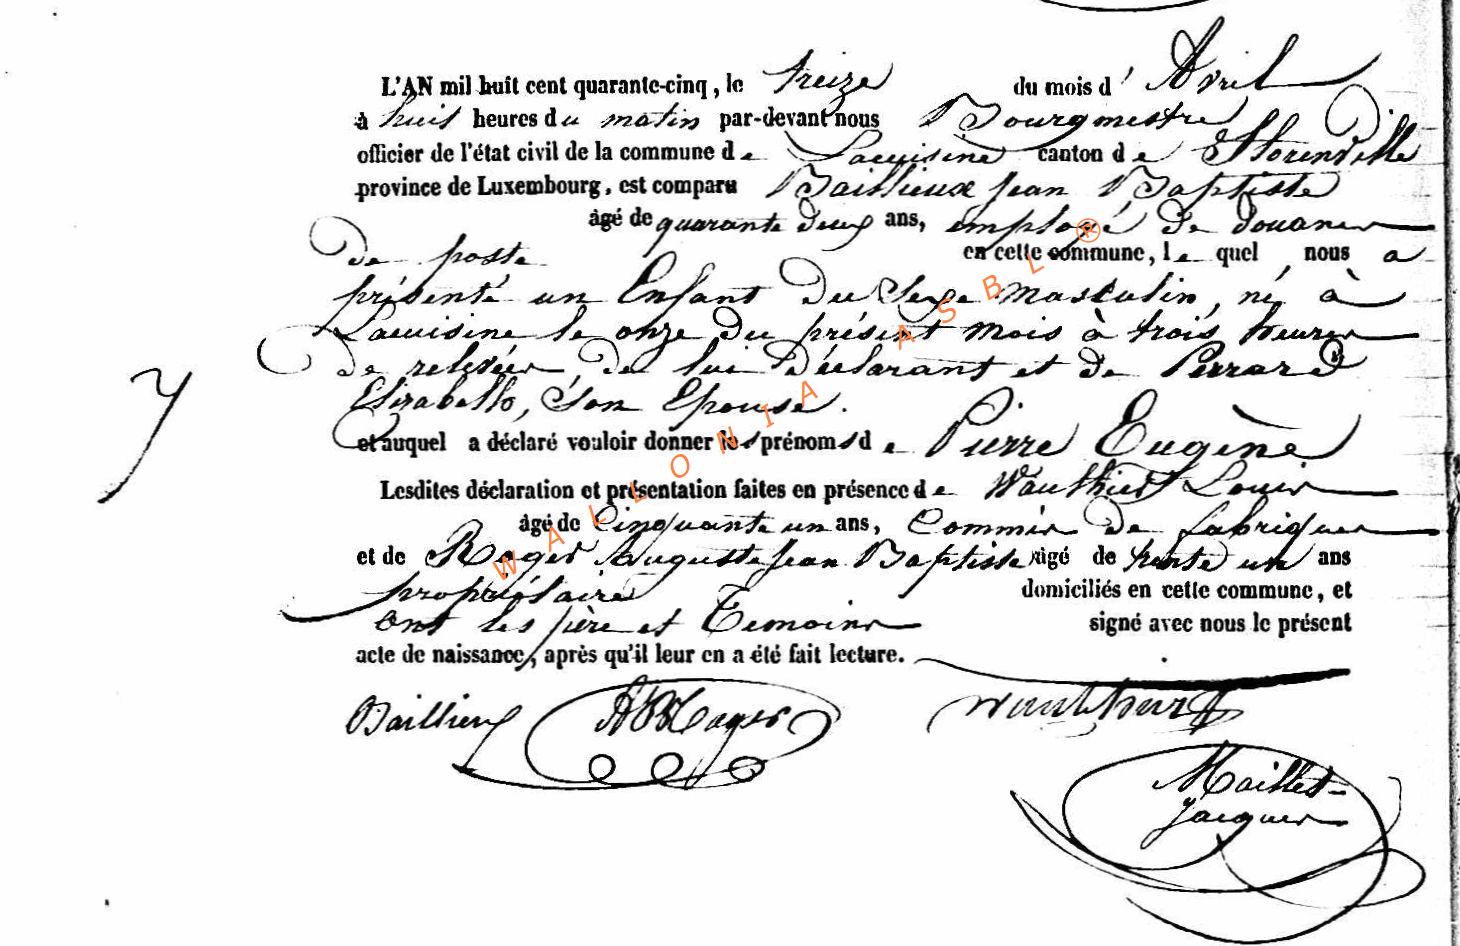 L'AN mil huit cent quarante-cinq, le treize du mois d' Avril
à huit heures du matin par-devant nous Bourgmestre
officier de l'état civil de la commune de Lacuisine canton de Florenville
province de Luxembourg, est comparu Baillieux Jean Baptiste
âgé de quarante deux ans, employé de douanes
de poste en cette commune, lequel nous a
présenté un Enfant du Sexe masculin, né à
Lacuisine le onze du présent mois à trois heures
de relevées, de lui déclarant et de Perrard
Elisabette, son Epouse.
et auquel a déclaré vouloir donner les prénoms de Pierre Eugène
Lesdites déclaration et présentation faites en présence de Wauthier Louis
âgé de Cinquante un ans, Commis de fabriques
et de Roger Auguste Jean Baptiste âgé de trente un ans
propriétaire domiciliés en cette commune, et
ont les père et Temoins signé avec nous le présent
acte de naissance, après qu'il leur en a été fait lecture.
Baillieux Roger
Maillet-
Jacques
WALLONIA ASBL ®